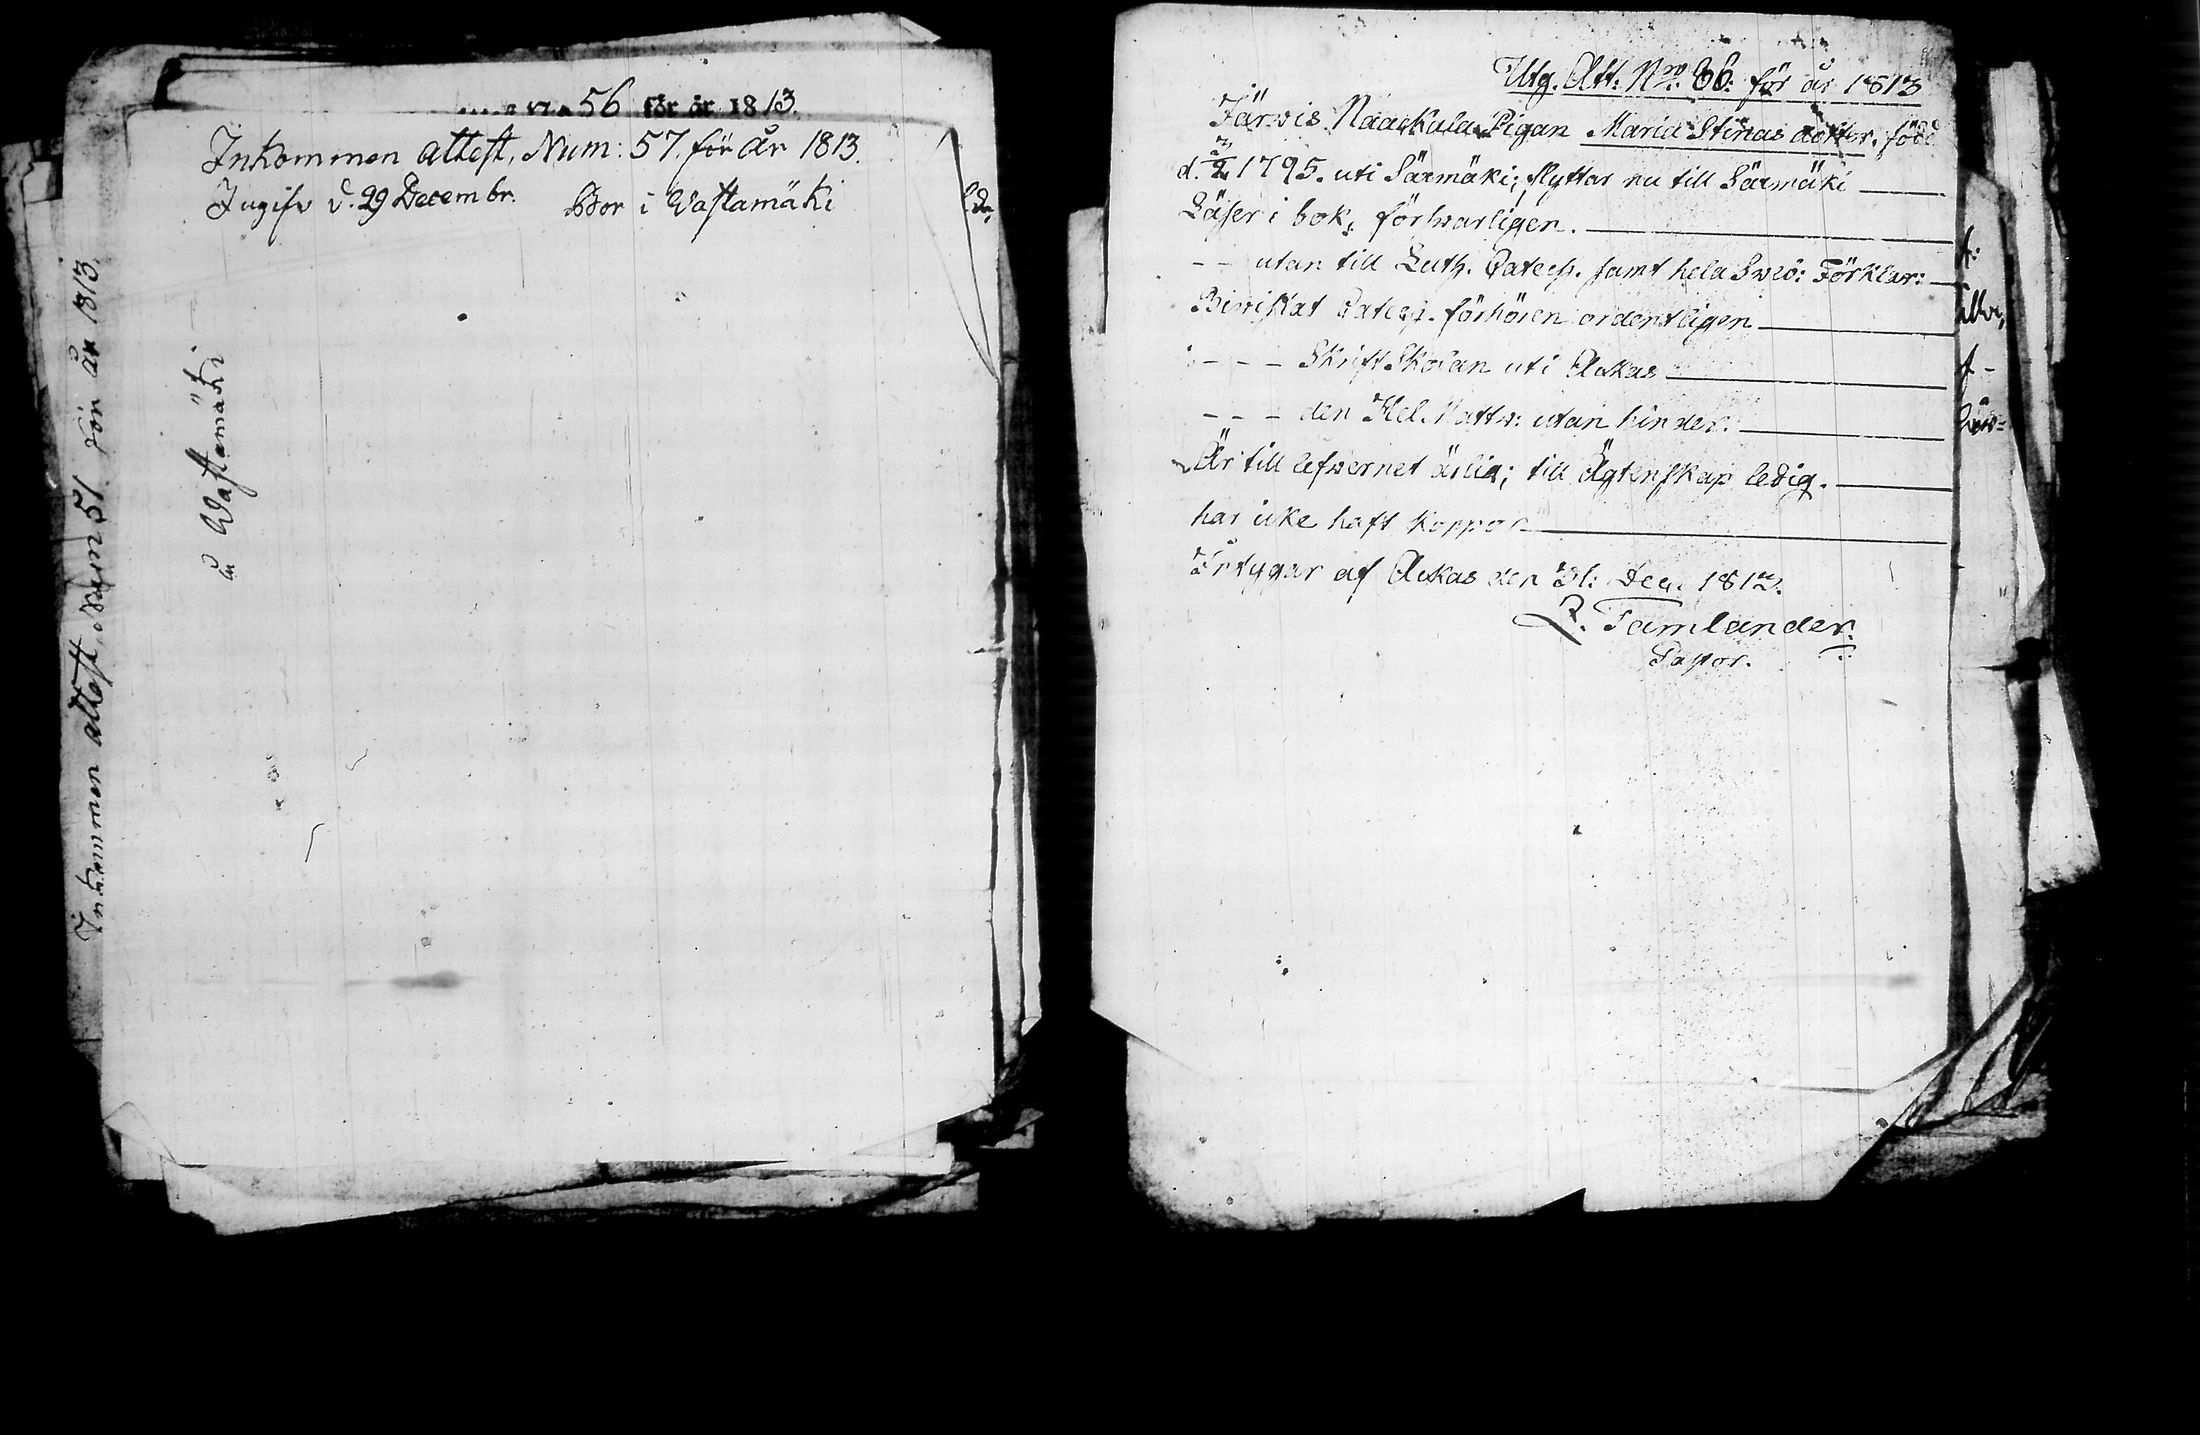 56 för år 1813.
Inkommen attest, Num: 57. för år 1813.
Ingifv d. 29 Decembr. Bor i Wastamäki
Inkommen attest, Num 51 för år 1813.
Wastamäki
Utg. Att: Nro: 36: för år 1813
Järvis Naackula Pigan Maria Stinas dotter, född
d. 1795. uti Särmäki; flyttar nu till Särmäki
Läser i bok; förswarligen.
- - utan till Luth. Catech. samt hela Sweb: Förklar:
Biwistat Catech. förhören ordentligen
- - - Skrift Skolan uti Ackas
- - - den Hel. Nattv: utan hinder.
Är till lefwernet ärlig; till Ägtenskap ledig.
har icke haft Koppor
Betygar af Ackas den 31: Dec. 1812.
Tamlander.
Pastor.